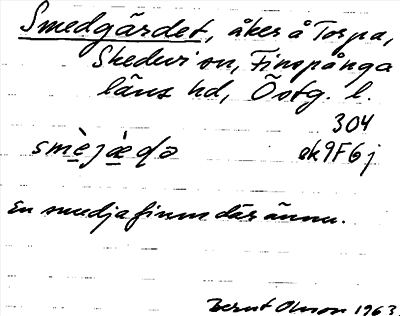 Smedgärdet, åker å Torpa,
Skedevi sn, Finspånga
läns hd, Östg. l.
304
smὲjæ̀ḍə ek9F6j
En smedja finns där ännu.
Bernt Olsson 1963.